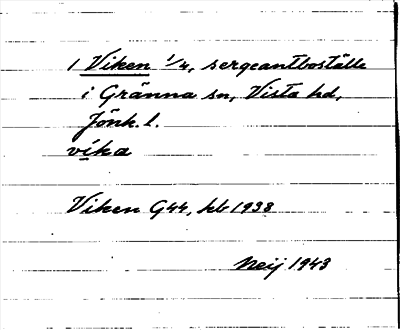 1 Viken 1/4, sergeantboställe
i Gränna sn, Vista hd,
Jönk. l.
vi̱ka
Viken G44, kb 1938
Neij 1943